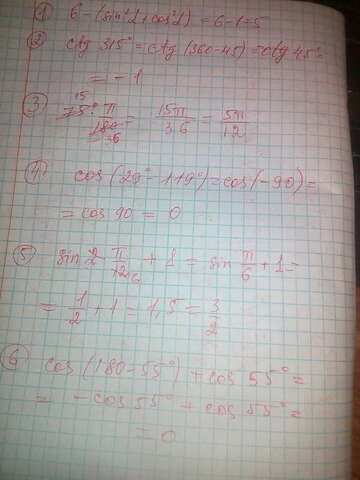 ① 6-(sin²α+cos²α)=6-1=5
② ctg 315°=ctg(360-45)=ctg 45°=
= -1
③ 75°·π/180 = 15π/36 = 5π/12
④ cos(29°-119°)=cos(-90)=
= cos 90 = 0
⑤ sin 2 π/12 + 1 = sin π/6 + 1 =
= 1/2 + 1 = 1,5 = 3/2
⑥ cos(180-55°)+cos 55°=
= -cos 55° + cos 55°=
= 0